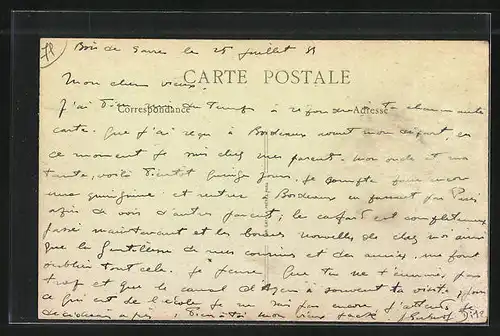 le 25 juillet 31
Mon cher vieux,
CARTE POSTALE
J'ai bien du temps à répondre à ta charmante
Correspondance
Adresse
carte que j'ai reçu à Bordeaux avant mon départ, en
ce moment je suis chez mes parents mon oncle et ma
tante, voilà bientôt quinze jours. Je compte faire encore
une quinzaine et rentrer Bordeaux en passant par
afin de voir d'autres parents; le cafard est complètement
passé maintenant et les bonnes nouvelles de chez moi ainsi
que la gentillesse de mes cousins et des amies, me font
oublier tout cela. Je pense que tu ne t'ennuies pas
trop et que le canal d'Agen a souvent ta visite, pour
ce qui est de l'école je ne sais pas encore j'attends
décision à bientôt mon vieux